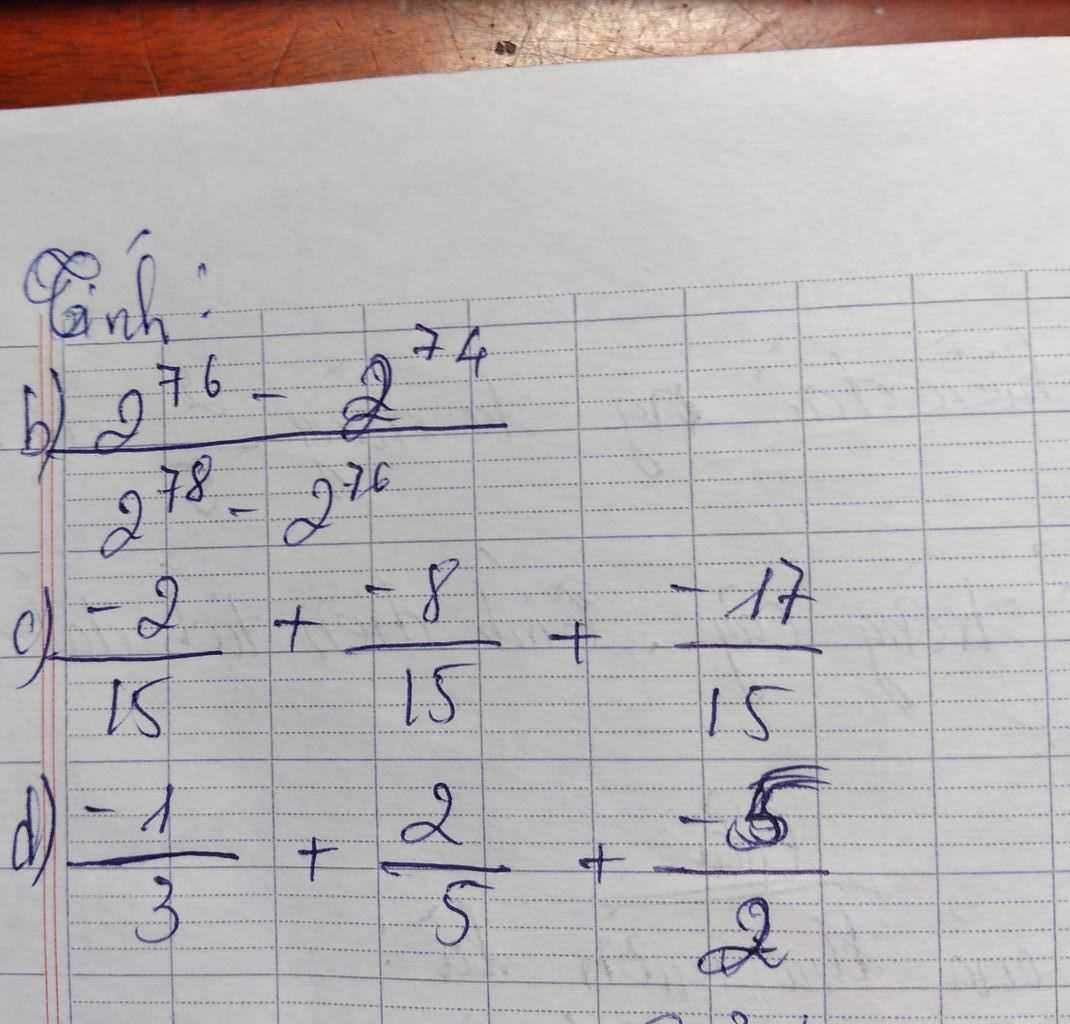 Tính :
b) 2^76 - 2^74
2^78 - 2^76
c) -2/15 + -8/15 + -17/15
d) -1/3 + 2/5 + -5/2